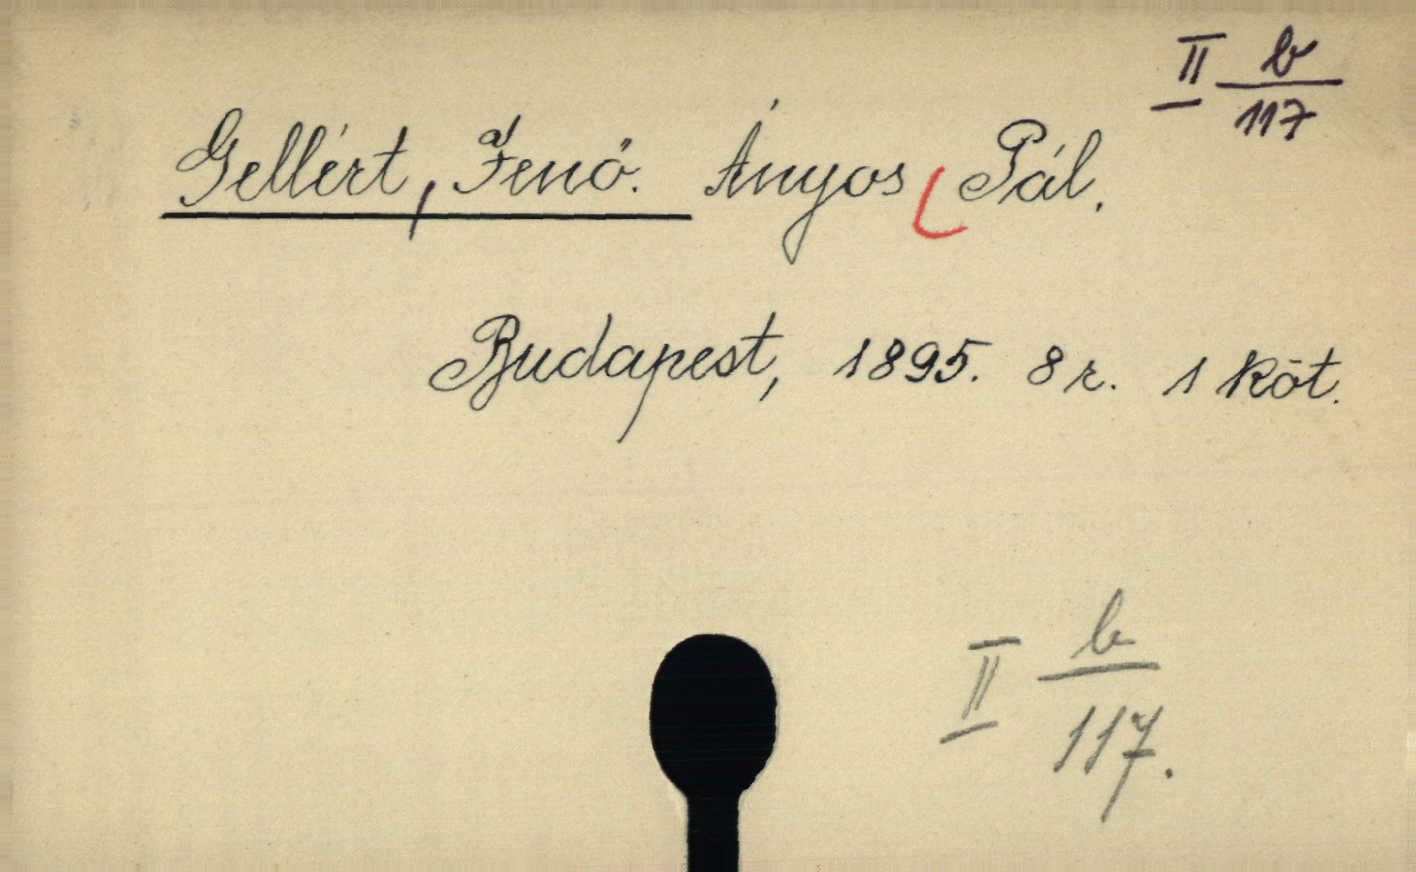 II b/117
Gellért, Jenő. Ányos Pál.
Budapest, 1895. 8 r. 1 köt.
II b/117.